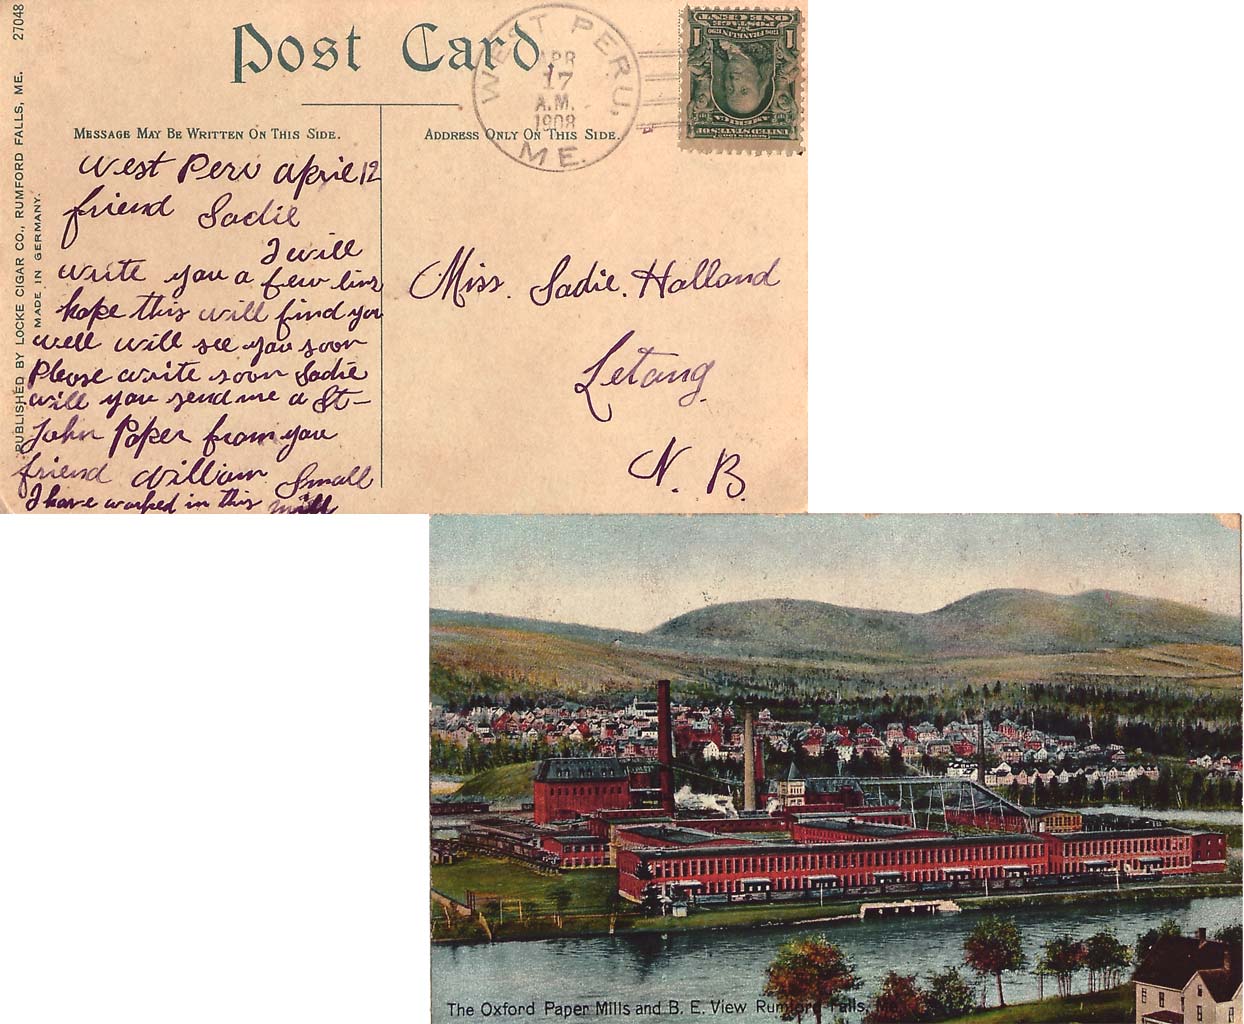 Post Card
WEST PERU,
APR
17
A.M.
1908
ME.
1 1706 FRANKLIN 1790 1
POSTAGE
ONE CENT
SERIES 1902
UNITED STATES OF
AMERICA
MESSAGE MAY BE WRITTEN ON THIS SIDE.
ADDRESS ONLY ON THIS SIDE.
PUBLISHED BY LOCKE CIGAR CO., RUMFORD FALLS, ME. 27048
MADE IN GERMANY.
West Peru april 12
friend Sadie
I will
write you a few lins
hope this will find you
well will see you soon
Please write soon Sadie
will you send me a St-
John Paper from you
friend William Small
I have worked in this mill
Miss. Sadie. Halland
Letang.
N. B.
The Oxford Paper Mills and B. E. View Rumford Falls, Me.